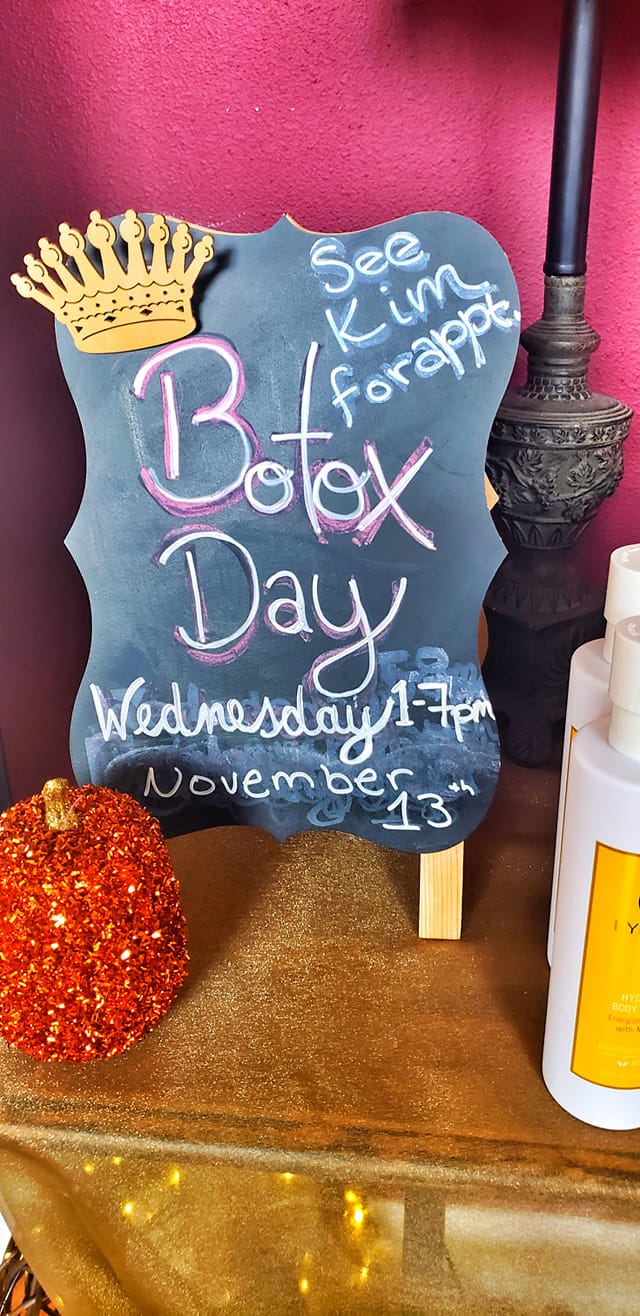 See
Kim
for appt.
Botox
Day
Wednesday 1-7pm
November
13th
BODY
with